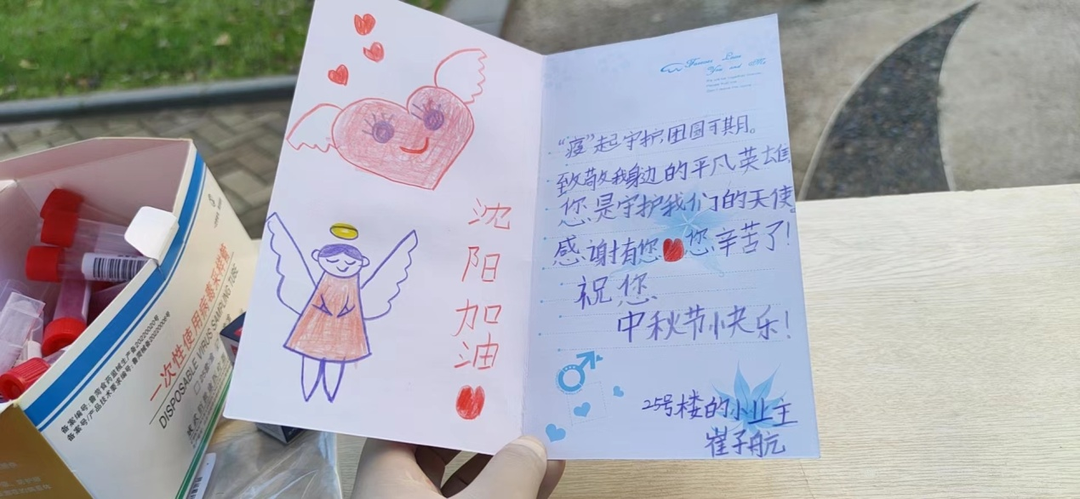 沈
阳
加
油
"疫"起守护,团圆可期。
致敬我身边的平凡英雄
您是守护我们的天使。
感谢有您 您辛苦了!
祝您
中秋节快乐!
25号楼的小业主
崔子航
一次性使用病毒采样管
DISPOSABLE VIRUS SAMPLING TUBE